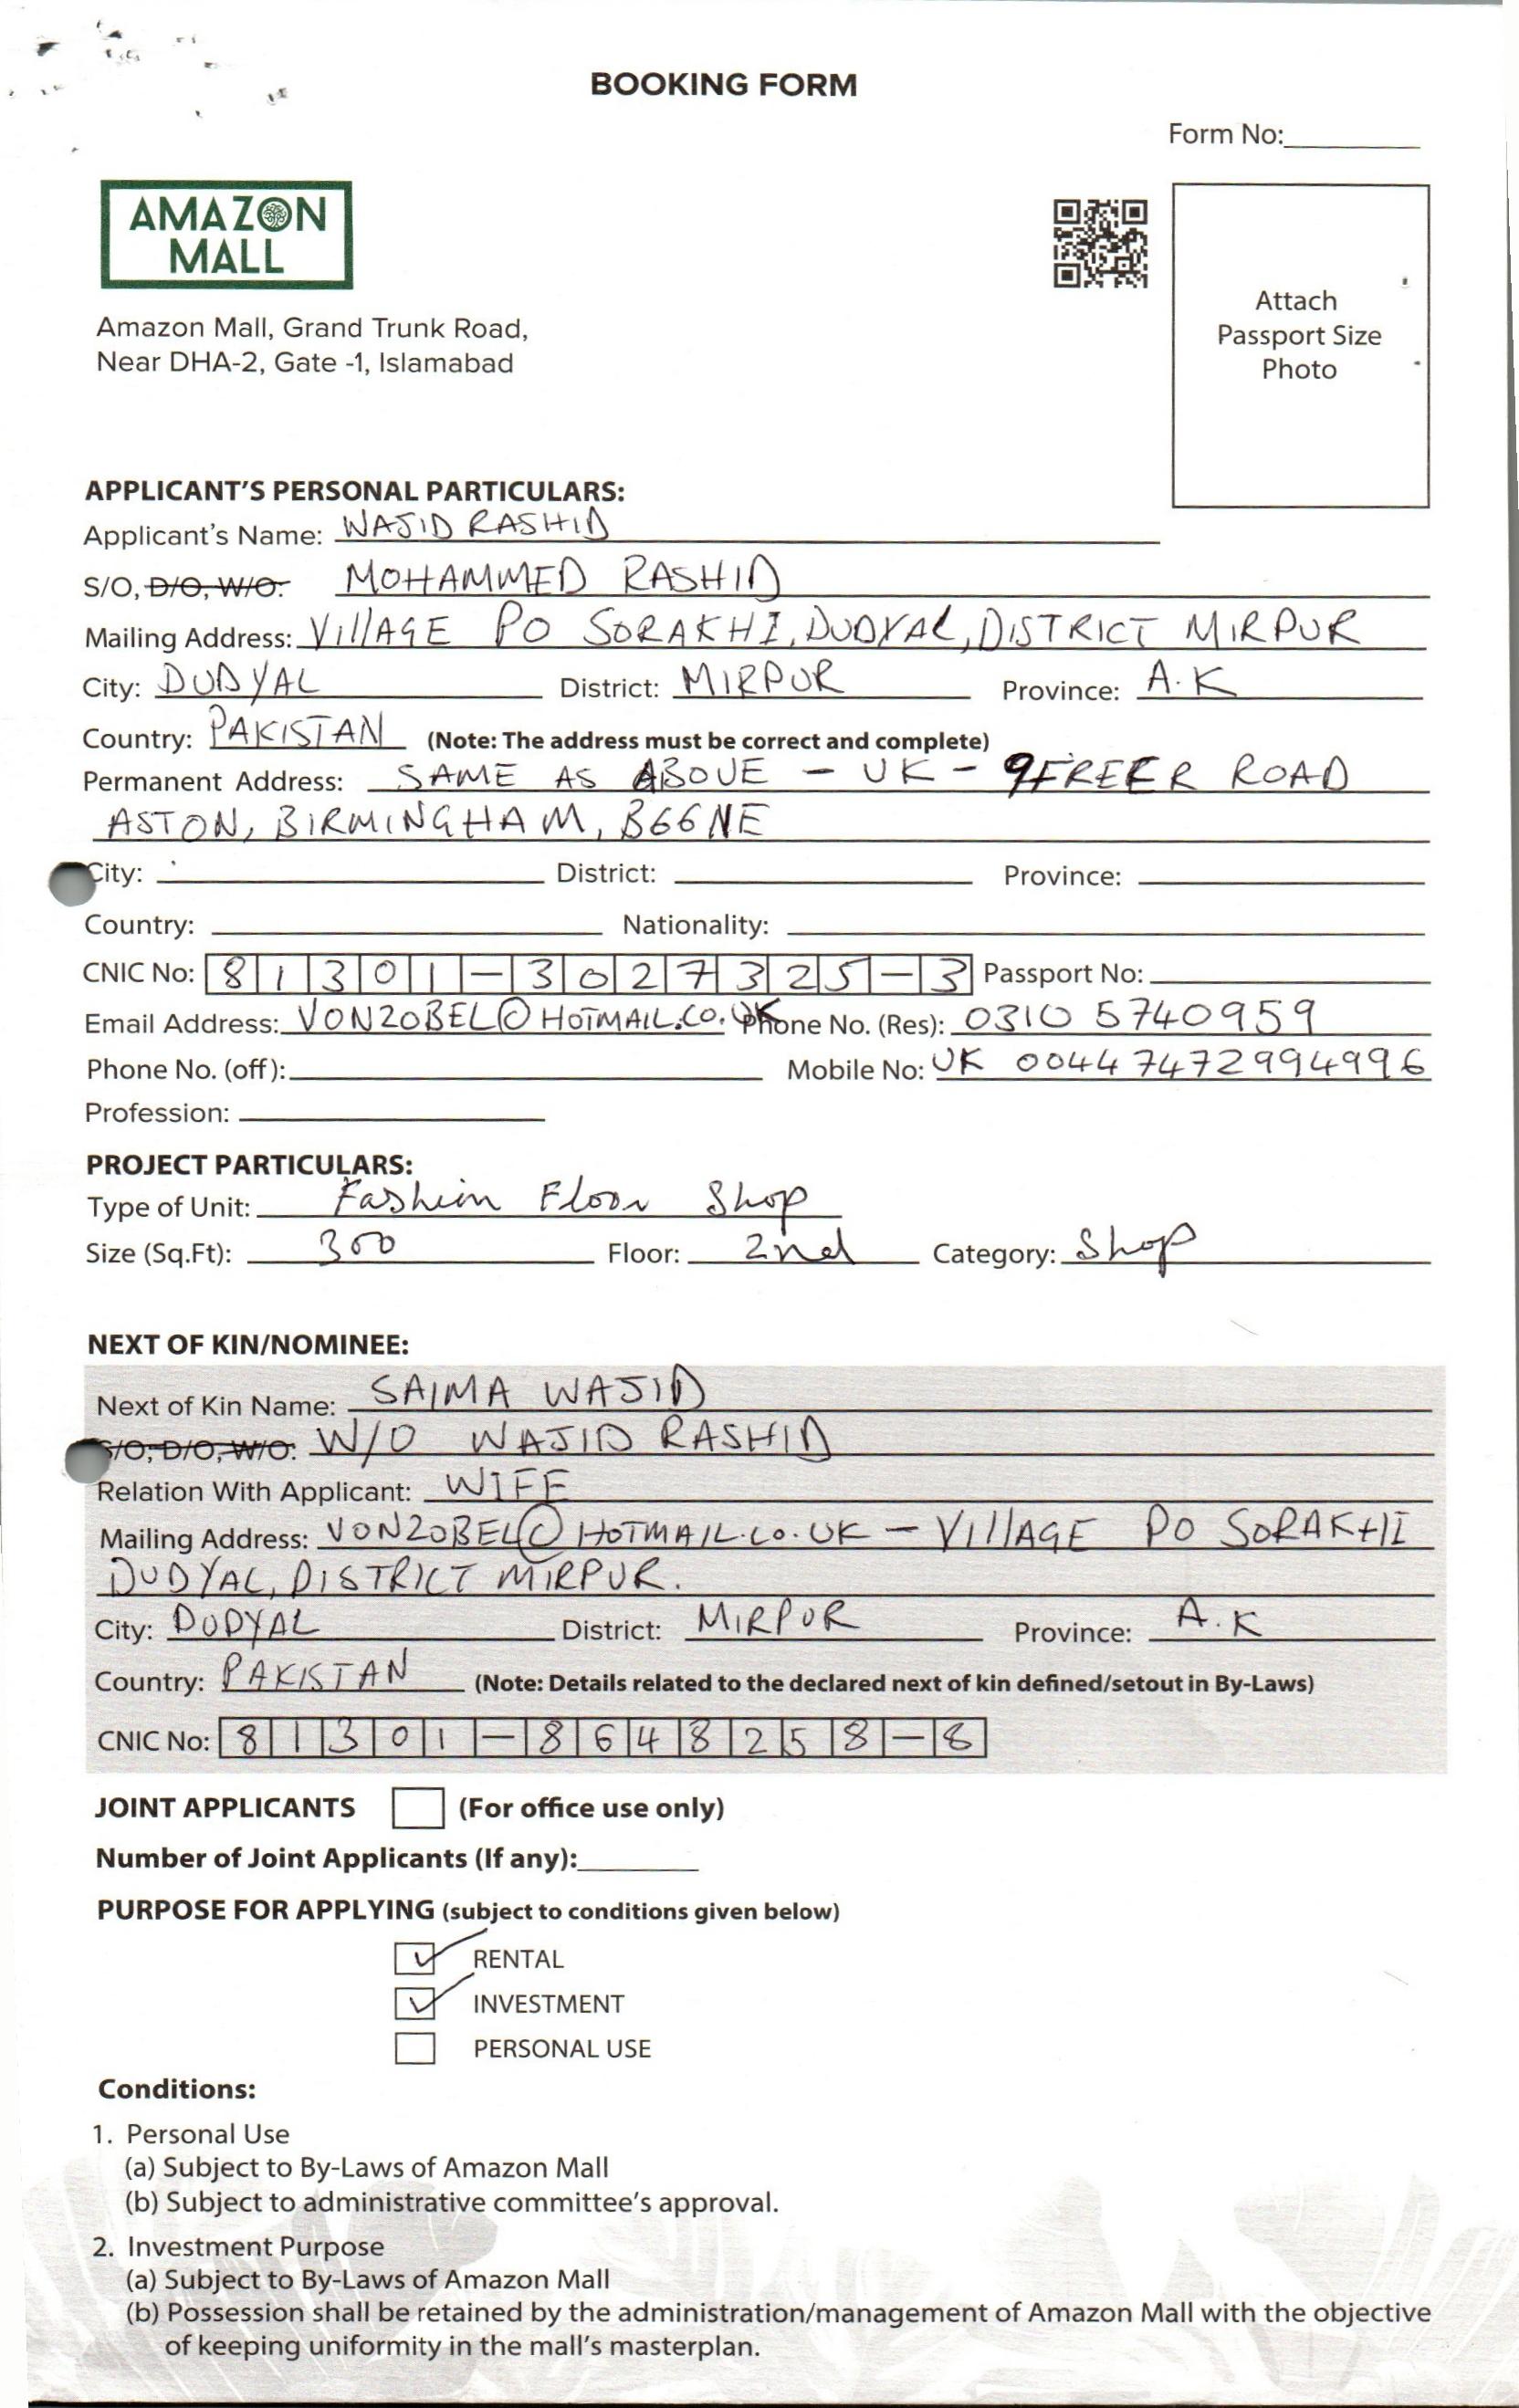 BOOKING FORM
Form No:
AMAZON
MALL
Attach
Passport Size
Photo
Amazon Mall, Grand Trunk Road,
Near DHA-2, Gate -1, Islamabad
APPLICANT'S PERSONAL PARTICULARS:
Applicant's Name: WAJID RASHID
S/O, D/O, W/O: MOHAMMED RASHID
Mailing Address: VillAGE PO SORAKHI, DUDYAL, DISTRICT MIRPUR
City: DUDYAL District: MIRPUR Province: A.K
Country: PAKISTAN (Note: The address must be correct and complete)
Permanent Address: SAME AS ABOVE - UK - 9 FREER ROAD
ASTON, BIRMINGHAM, B66NE
City: District: Province:
Country: Nationality:
CNIC No: 81301-3027325-3 Passport No:
Email Address: VONZOBEL@HOTMAIL.CO.UK Phone No. (Res): 0310 5740959
Phone No. (off): Mobile No: UK 0044 7472994996
Profession:
PROJECT PARTICULARS:
Type of Unit: Fashion Floor Shop
Size (Sq.Ft): 300 Floor: 2nd Category: Shop
NEXT OF KIN/NOMINEE:
Next of Kin Name: SAIMA WAJID
S/O, D/O, W/O: W/O WAJID RASHID
Relation With Applicant: WIFE
Mailing Address: VONZOBEL@HOTMAIL.CO.UK - VillAGE PO SORAKHI
DUDYAL, DISTRICT MIRPUR.
City: DUDYAL District: MIRPUR Province: A.K
Country: PAKISTAN (Note: Details related to the declared next of kin defined/setout in By-Laws)
CNIC No: 81301-8648258-8
JOINT APPLICANTS (For office use only)
Number of Joint Applicants (If any):
PURPOSE FOR APPLYING (subject to conditions given below)
✓ RENTAL
✓ INVESTMENT
PERSONAL USE
Conditions:
1. Personal Use
(a) Subject to By-Laws of Amazon Mall
(b) Subject to administrative committee's approval.
2. Investment Purpose
(a) Subject to By-Laws of Amazon Mall
(b) Possession shall be retained by the administration/management of Amazon Mall with the objective
of keeping uniformity in the mall's masterplan.